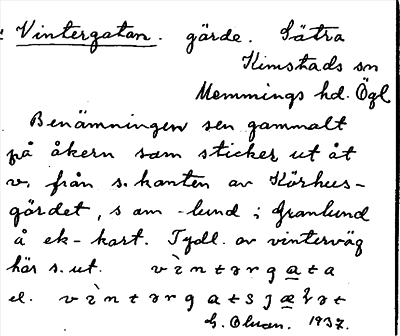 Vintergatan. gärde. Sätra
Kimstads sn
Memmings hd. Ögl
Benämningen sen gammalt
på åkern som sticker ut åt
v. från s. kanten av Körhus-
gärdet, s om -lund i Granlund
å ek-kart. Tydl. av vinterväg
här s. ut. vìntərgata
el. vìntərgatsjæ
G. Olson. 1937.